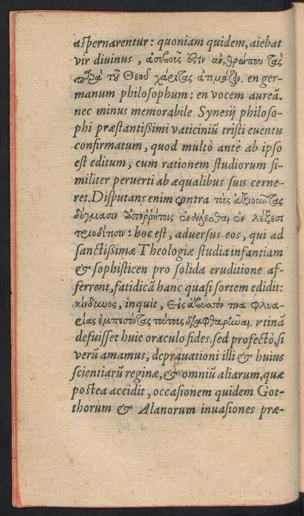 aspernarentur: quoniam quidem, aiebat
vir divinus, ἀσεβοῦς ἐστιν ἀνθρώπου τὰς
παρὰ τοῦ Θεοῦ χάριτας ἀτιμάζειν. en ger-
manum philosophum: en vocem aureã.
nec minus memorabile Synesij philoso-
phi præstantißimi vaticiniũ tristi euentu
confirmatum, quod multò antè ab ipso
est editum, cum rationem studiorum si-
militer peruerti ab æqualibus suis cerne-
ret. Disputans enim contra
hoc est, aduersus eos, qui ad
sanctißimæ Theologiæ studia infantiam
& sophisticen pro solida eruditione af-
ferrent, fatidicã hanc quasi sortem edidit:
κίνδυνος, inquit, εἰς ἄβυσσόν τινα φλυα-
ρίας ἐμπεσόντας τούτους διαφθαρῆναι. vtinã
defuisset huic oraculo fides. sed profectò, si
verũ amamus, deprauationi illi & huius
scientiarũ reginæ, & omniũ aliarum, quæ
postea accidit, occasionem quidem Got-
thorum & Alanorum inuasiones præ-